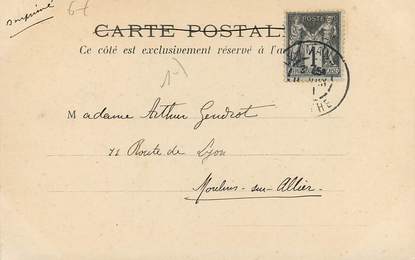 imprimé
CARTE POSTALE
Ce côté est exclusivement réservé à l'a
Madame Arthur Gendrot
71 Route de Lyon
Moulins-sur-Allier